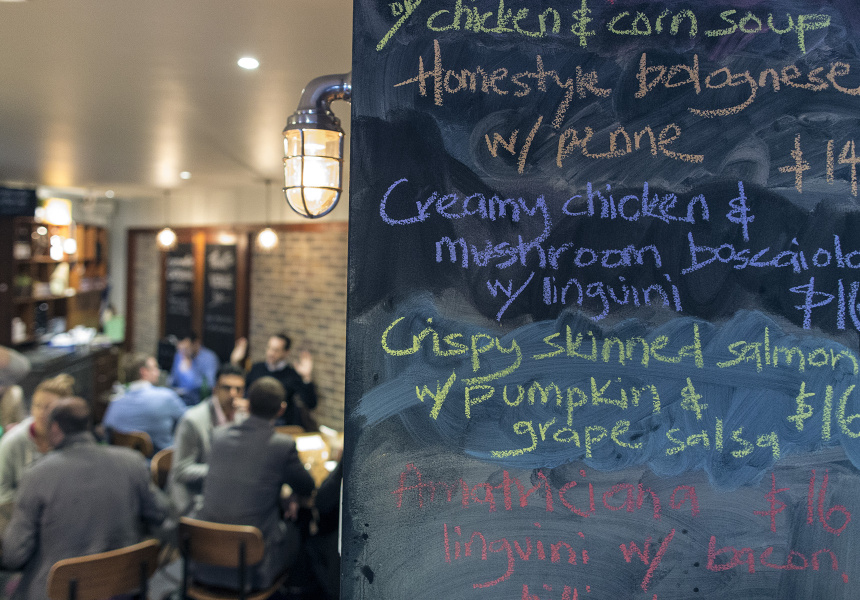 w/ chicken & corn soup
Homestyle bolognese
w/ penne $14
Creamy chicken &
mushroom boscaiola
w/ linguini
Crispy skinned salmon
w/ pumpkin & $16
grape salsa
Amatriciana $16
linguini w/ bacon,